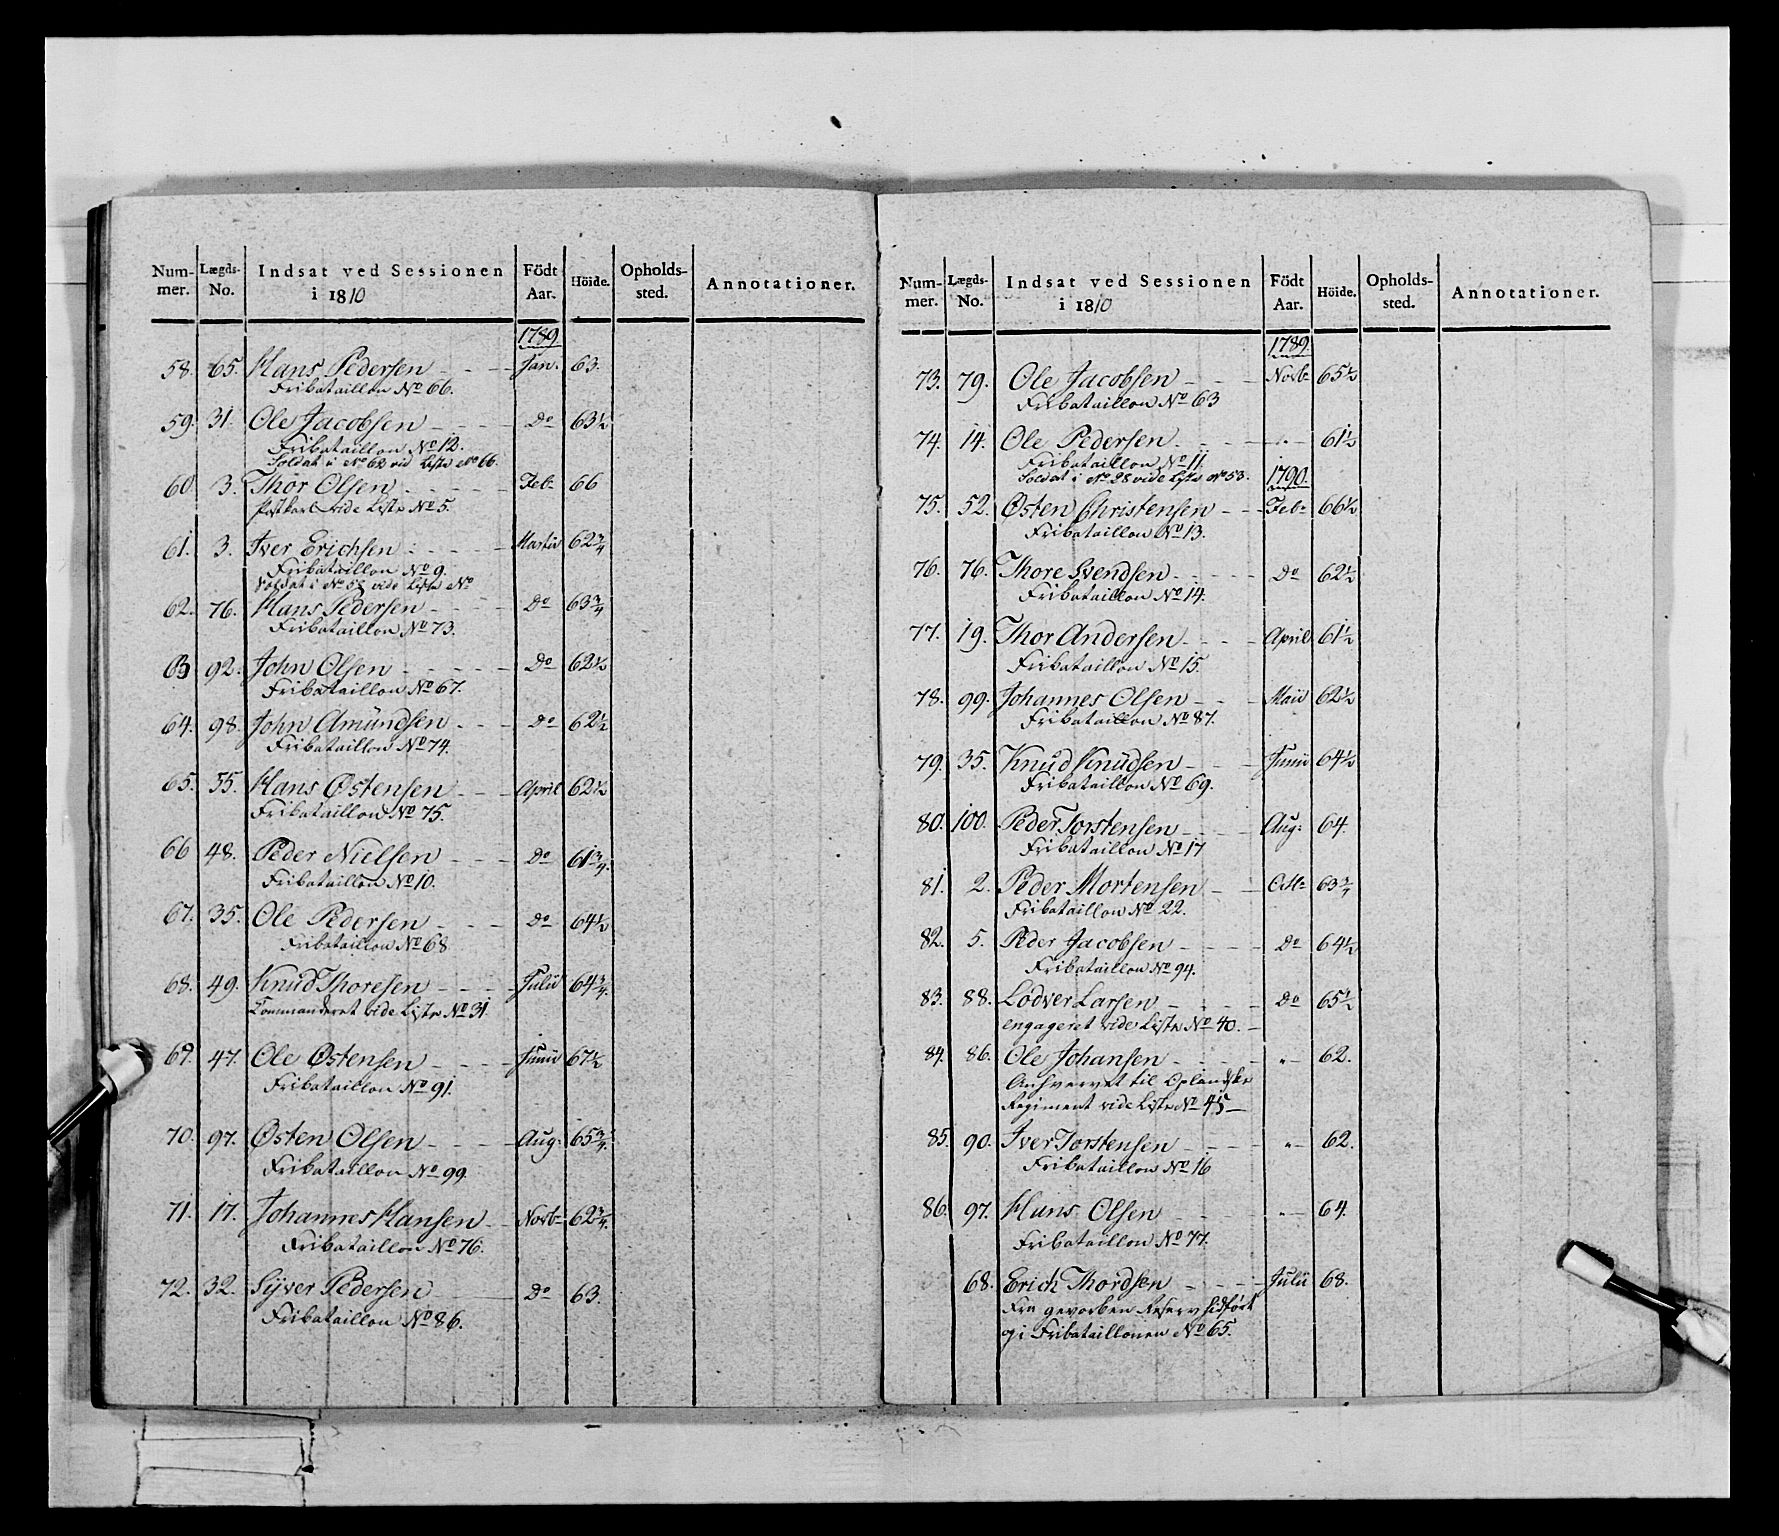 Num- Lægds- Indsat ved Sessionen Födt Höide. Opholds- Annotationer.
mer. No. i 1810 Aar. sted.
1789
58. 65. Hans Pedersen Jan: 63.
Fribataillon No 66.
59. 31. Ole Jacobsen Do 63½
Fribataillon No 12.
Soldat i No 62 vid Liste No 66.
60. 3. Thor Olsen Feb: 66
Postkarl vide Liste No 5.
61. 3. Iver Erichsen Martii 62¾
Fribataillon No 9.
Soldat i No 58 vide Liste No
62. 76. Hans Pedersen Do 63¾
Fribataillon No 73.
63 92. John Olsen Do 62½
Fribataillon No 67.
64. 98. John Amündsen Do 62½
Fribataillon No 74.
65. 55. Hans Østensen April 62½
Fribataillon No 75.
66 48. Peder Nielsen Do 61¾.
Fribataillon No 10.
67. 35. Ole Pedersen Do 64½
Fribataillon No 68
68. 49. Knud Thoresen Julii 64¾.
Commanderet vide Liste No 31.
69. 47. Ole Østensen Junii 67½
Fribataillon No 91.
70. 97. Østen Olsen Aug: 65¾.
Fribataillon No 99.
71. 17. Johannes Hansen Novb: 62¾.
Fribataillon No 76.
72. 32. Syver Pedersen Do 63.
Fribataillon No 86.
Num- Lægds- Indsat ved Sessionen Födt Höide. Opholds- Annotationer.
mer. No. i 1810 Aar. sted.
1789
73. 79. Ole Jacobsen Novb: 65½
Fribataillon No 63
74. 14. Ole Pedersen "- 61½
Fribataillon No 11.
Soldat i No 28 vide Liste No 53. 1790.
75. 52. Østen Christensen Feb: 66½
Fribataillon No 13.
76. 76. Thore Svendsen Do 62½
Fribataillon No 14.
77. 19. Thor Andersen April 61½
Fribataillon No 15.
78. 99. Johannes Olsen Maii 62½
Fribataillon No 87.
79. 35. Knud Knudsen Junii 64½
Fribataillon No 69.
80. 100. Peder Torstensen Aug: 64.
Fribataillon No 17
81. 2. Peder Mortensen Octb: 63¾
Fribataillon No 22.
82. 5. Peder Jacobsen Do 64½
Fribataillon No 94.
83. 88. Lodver Larsen Do 65½
engageret vide Liste No 40.
84. 86. Ole Johansen "- 62.
Anhvervet til Oplandske
Regiment vide Liste No 45
85. 90. Iver Torstensen "- 62.
Fribataillon No 16
86. 97. Hans Olsen "- 64.
Fribataillon No 77.
68. Erich Thordsen Julii 68.
Fra gevorben Reserve hidført
og i Fribataillonen No 65.